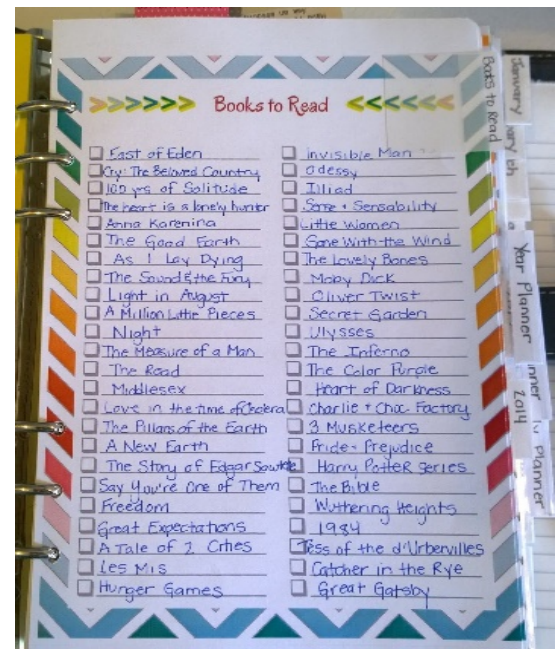 Books to Read
East of Eden
Cry: The Beloved Country
100 yrs of Solitude
The heart is a lonely hunter
Anna Karenina
The Good Earth
As I Lay Dying
The Sound & the Fury
Light in August
A Million Little Pieces
Night
The Measure of a Man
The Road
Middlesex
Love in the time of Cholera
The Pillars of the Earth
A New Earth
The Story of Edgar Sawtelle
Say You're One of Them
Freedom
Great Expectations
A Tale of 2 Cities
Les Mis
Hunger Games
Invisible Man
Odessy
Illiad
Sense + Sensability
Little Women
Gone With the Wind
The Lovely Bones
Moby Dick
Oliver Twist
Secret Garden
Ulysses
The Inferno
The Color Purple
Heart of Darkness
Charlie + Choc Factory
3 Musketeers
Pride + Prejudice
Harry Potter Series
The Bible
Wuthering Heights
1984
Tess of the d'Urbervilles
Catcher in the Rye
Great Gatsby
Books to Read
January
Year Planner
Planner
2014